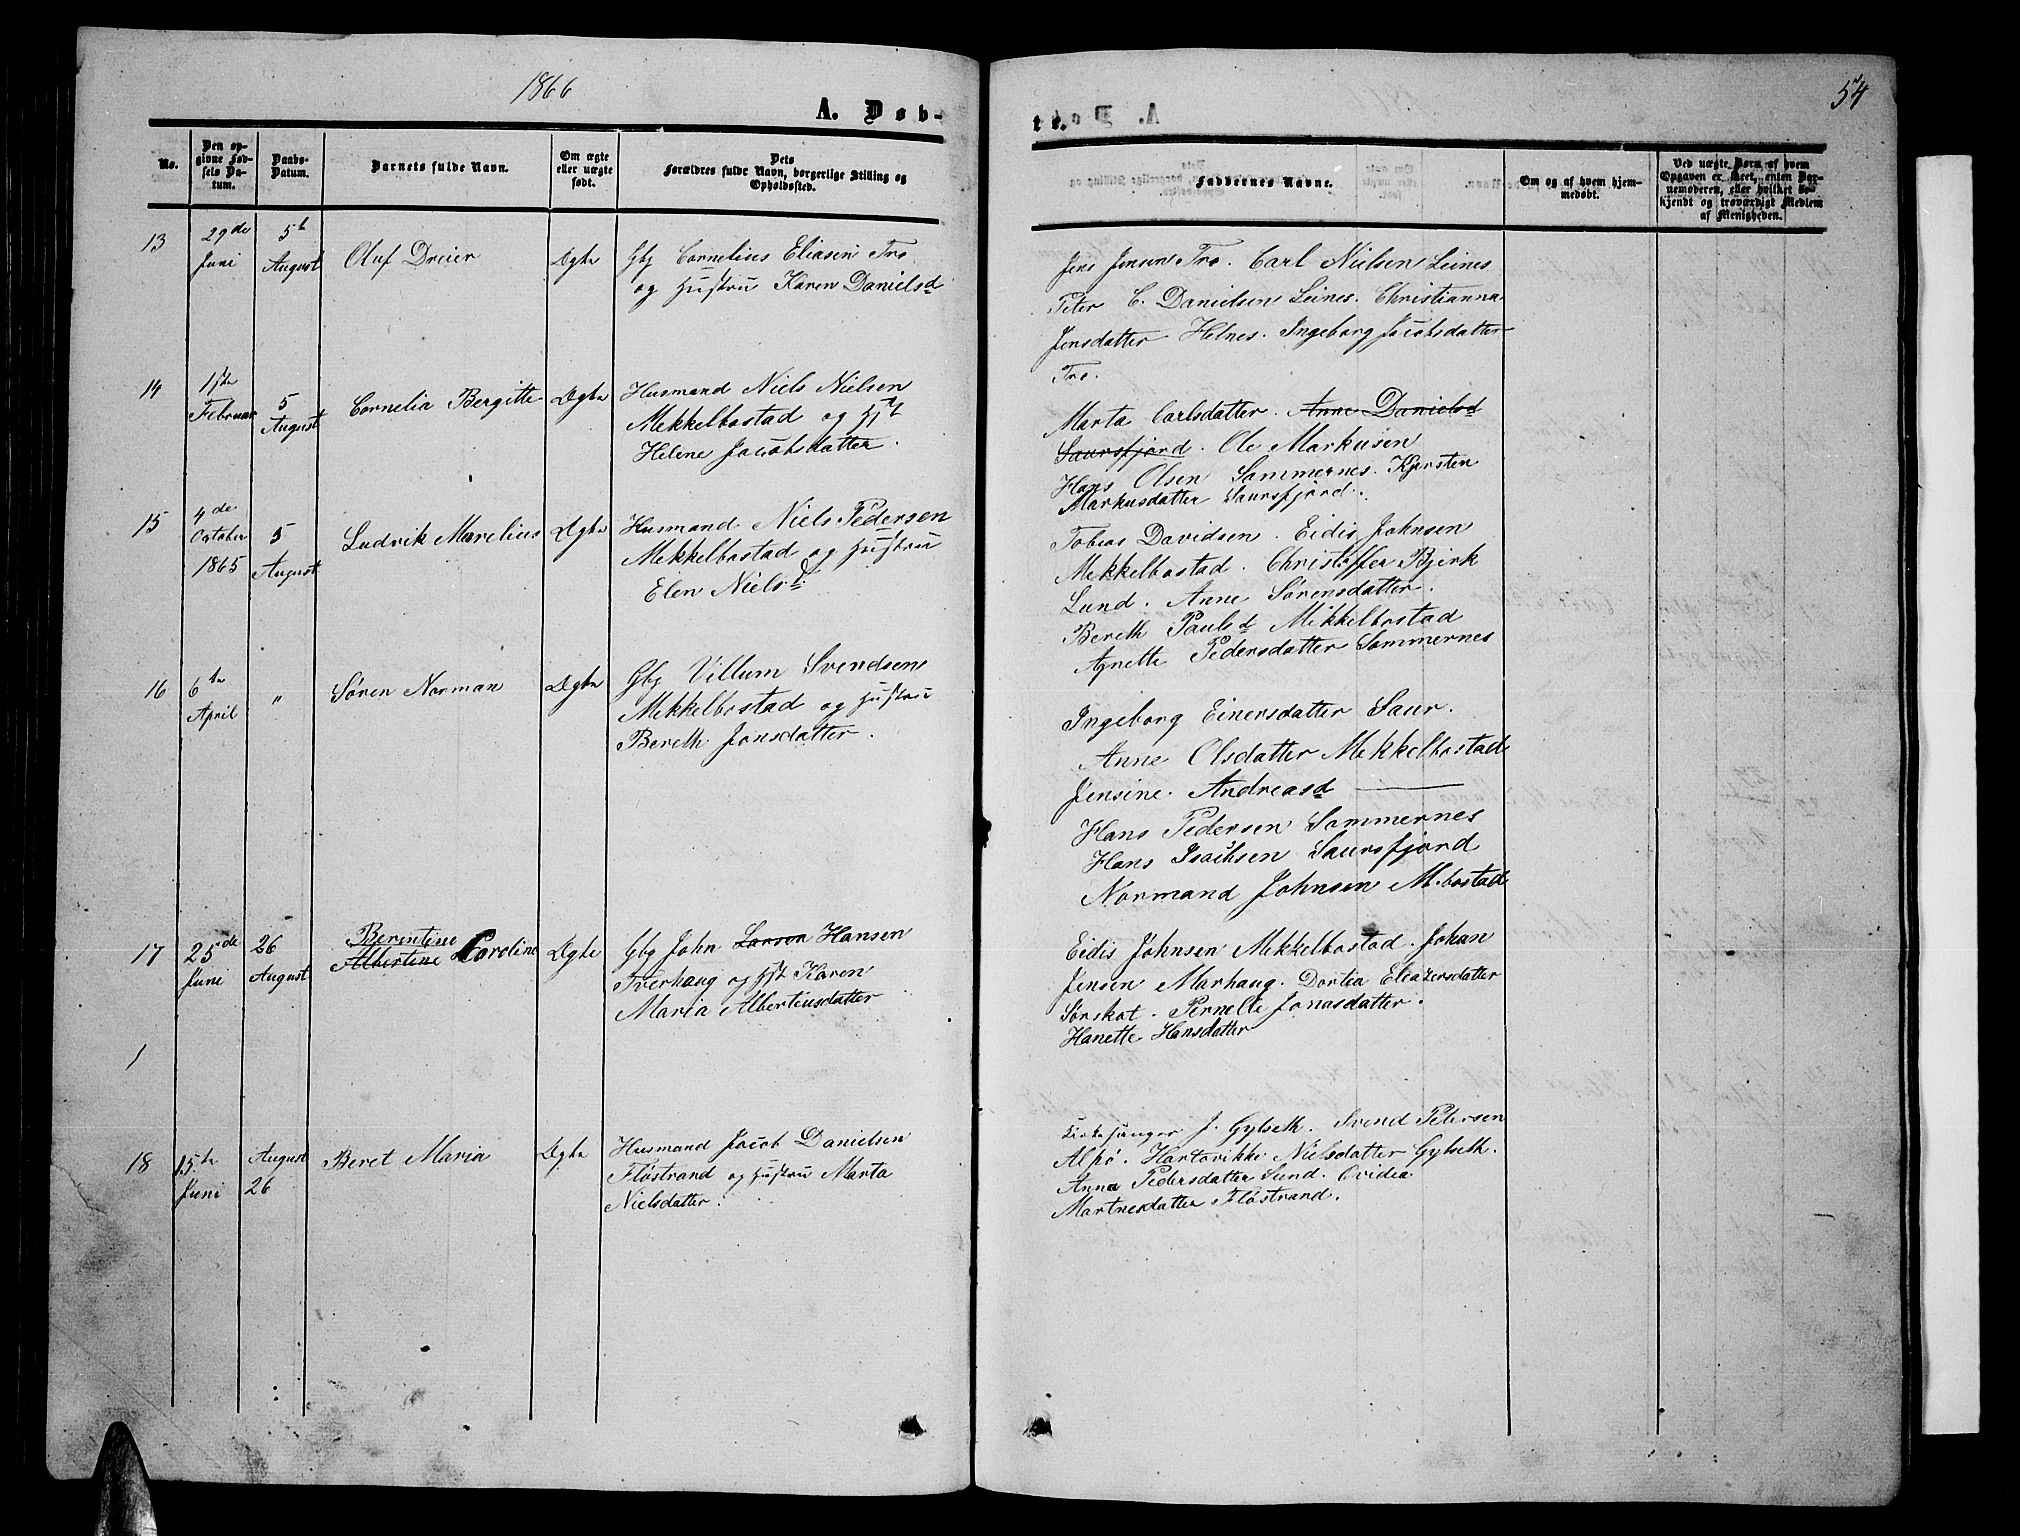 1866
A. Døb-
No.
Den op-
givne Fød-
sels Da-
tum.
Daabs-
Datum.
Barnets fulde Navn.
Om ægte
eller uægte
født.
Dets
Forældres fulde Navn, borgerlige Stilling og
Opholdssted.
13
29de
Juni
5te
August
Oluf Dreier
Ægte
Gbr Cornelius Eliasen Tro
og Hustru Karen Danielsd
14
1ste
Februar
5
August
Cornelia Bergitte
Ægte
Husmand Niels Nielsen
Mekkelbostad og Hst
Helene Jacobsdatter.
15
4de
October
1865
5
August
Ludvik Marelius
Ægte
Husmand Niels Pedersen
Mekkelbostad og Hustru
Elen Nielsd.
16
6te
April
"
Søren Norman
Ægte
Gbr Villum Svendsen
Mekkelbostad og Hustru
Bereth Jonsdatter.
17
25de
Juni
26
August
Berentine
Albertine Caroline
Ægte
Gbr John Larsen Hansen
Tverhaug og Hst Karen
Maria Albertinsdatter
1
18
15te
Juni
August
26
Beret Maria
Ægte
Husmand Jacob Danielsen
Fløstrand og Hustru Marta
Nielsdatter.
54
te.
Faddernes Navne.
Om og af hvem hjem-
medøbt.
Ved uægte Børn, af hvem
Opgaven er skeet, enten Bar-
nemoderen, eller hvilket be-
kjendt og troværdigt Medlem
af Menigheden.
Jens Jensen Tro. Carl Nielsen Leines
Peter C. Danielsen Leines. Christianna
Jensdatter Helnes. Ingeborg Jacobsdatter
Tro.
Marta Carlsdatter. Anne Danielsd
Saursfjord. Ole Markusen
Hans Olsen Sommernes. Kjersten
Markusdatter Saursfjord.
Tobias Davidsen. Eidis Johnsen
Mekkelbostad. Christoffer Bjerk
Lund. Anne Sørensdatter.
Bereth Paulsd Mikkelbostad
Agnette Pedersdatter Sommernes
Ingeborg Einersdatter Saur.
Anne Olsdatter Mekkelbostad
Jensine Andreasd —
Hans Pedersen Sommernes
Hans Isachsen Saursfjord
Normand Johnsen M.bostad
Eidis Johnsen Mekkelbostad. Johan
Jensen Marhaug. Dortea Eleazersdatter
Sørskot. Pernelle Jonasdatter.
Hanette Hansdatter
Kirkesanger J. Gylseth. Svend Petersen
Alsø. Hartavikke Nielsdatter Gylseth.
Anna Pedersdatter Lund. Ovidea
Martnesdatter Fløstrand.